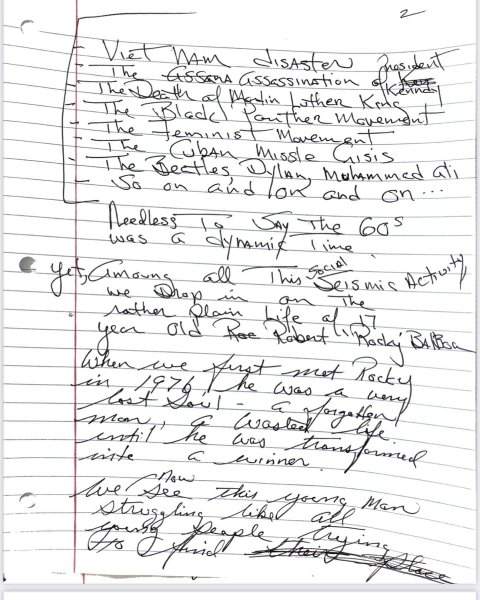 2
Viet Nam disaster
The Assassination of President Kennedy
The Death of Martin Luther King
The Black Panther Movement
The Feminist Movement
The Cuban Missle Crisis
The Beatles, Dylan, Muhammed Ali
So on and on and on...
Needless To Say The 60s
was a dynamic Time
yet, Amoung all This Social Seismic Activity
we Drop in on The
rather plain Life of 17
year old Robert "Rocky" Balboa
When we first met Rocky
in 1976, he was a very
lost soul - a forgotten
man, a wasted life
until he was transformed
into a winner.
We Now See this young Man
struggling like all
young people trying
to find their place